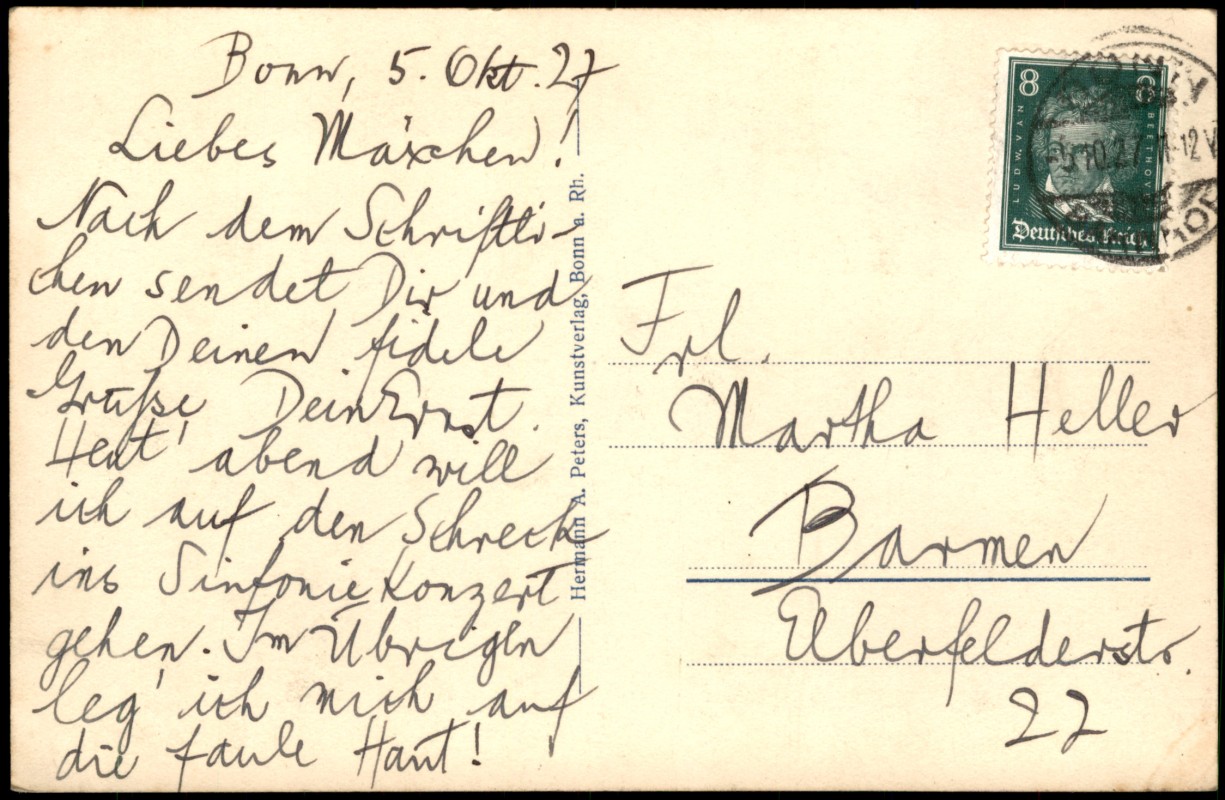 Bonn, 5. Okt. 27
Liebes Mäxchen!
Nach dem Schriftli-
chen sendet Dir und
den Deinen fidele
Grüße Dein Ernst.
Heut' abend will
ich auf den Schreck
ins Sinfonie Konzert
gehen. Im Übrigen
leg' ich mich auf
die faule Haut!
Hermann A. Peters, Kunstverlag, Bonn a. Rh.
8 8
LUDW. VAN
BEETHOVEN
Deutsches Reich
5.10.27 11-12 V
Frl.
Martha Heller
Barmen
Elberfelderstr.
22